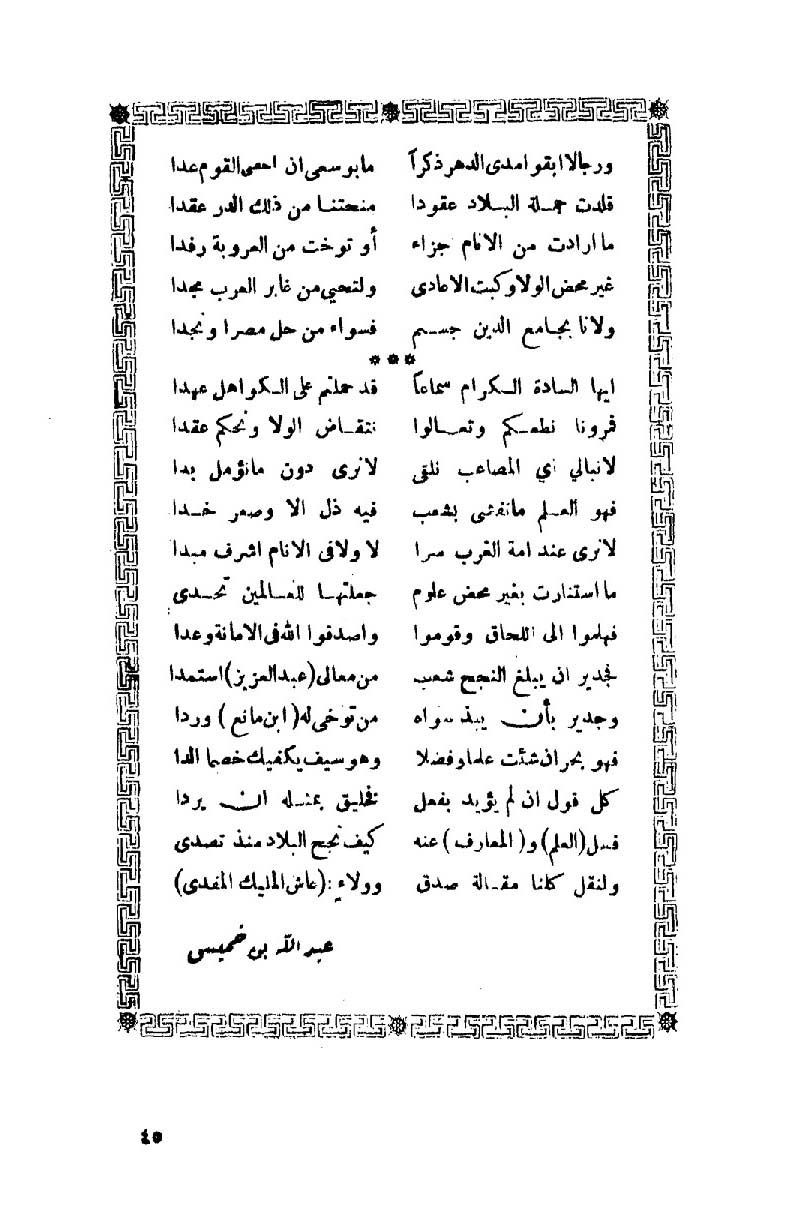 ورجالا ابقوا مدى الدهر ذكرآ ما بوسعى ان احصى القوم عدا
قلدت حملة البلاد عقودا منحتنا من ذلك الدر عقدا
ما ارادت من الانام جزاء أو توخت من العروبة رفدا
غير محض الولا وكبت الاعادى ولتحيي من غابر العرب مجدا
ولانا بجامع الدين جسم فسواء من حل مصرا ونجدا
* * *
ايها السادة الكرام سماعاً قد حملتم على الكواهل عهدا
فمرونا نطعكم وتعالوا نتقاض الولا ونحكم عقدا
لانبالي أي المصاعب نلقى لانرى دون مانؤمل بدا
فهو العلم مانفشى بشعب فيه ذل الا وصعر خدا
لانرى عند امة الغرب سرا لا ولا فى الانام اشرف مبدا
ما استنارت بغير محض علوم جعلتها للعالمين تحدى
فهلموا الى اللحاق وقوموا واصدقوا الله فى الامانة وعدا
فجدير ان يبلغ النجح شعب من معالى (عبدالعزيز) استمدا
وجدير بأن يبذ سواه من توخى له (ابن مانع) وردا
فهو بحر ان شئت علما وفضلا وهو سيف يكفيك خصما الدا
كل قول ان لم يؤيد بفعل فخليق بمثله ان يردا
فسل (العلم) و (المعارف) عنه كيف نجح البلاد منذ تصدى
ولنقل كلنا مقالة صدق وولاء : (عاش المليك المفدى)
عبد الله بن خميس
٤٥